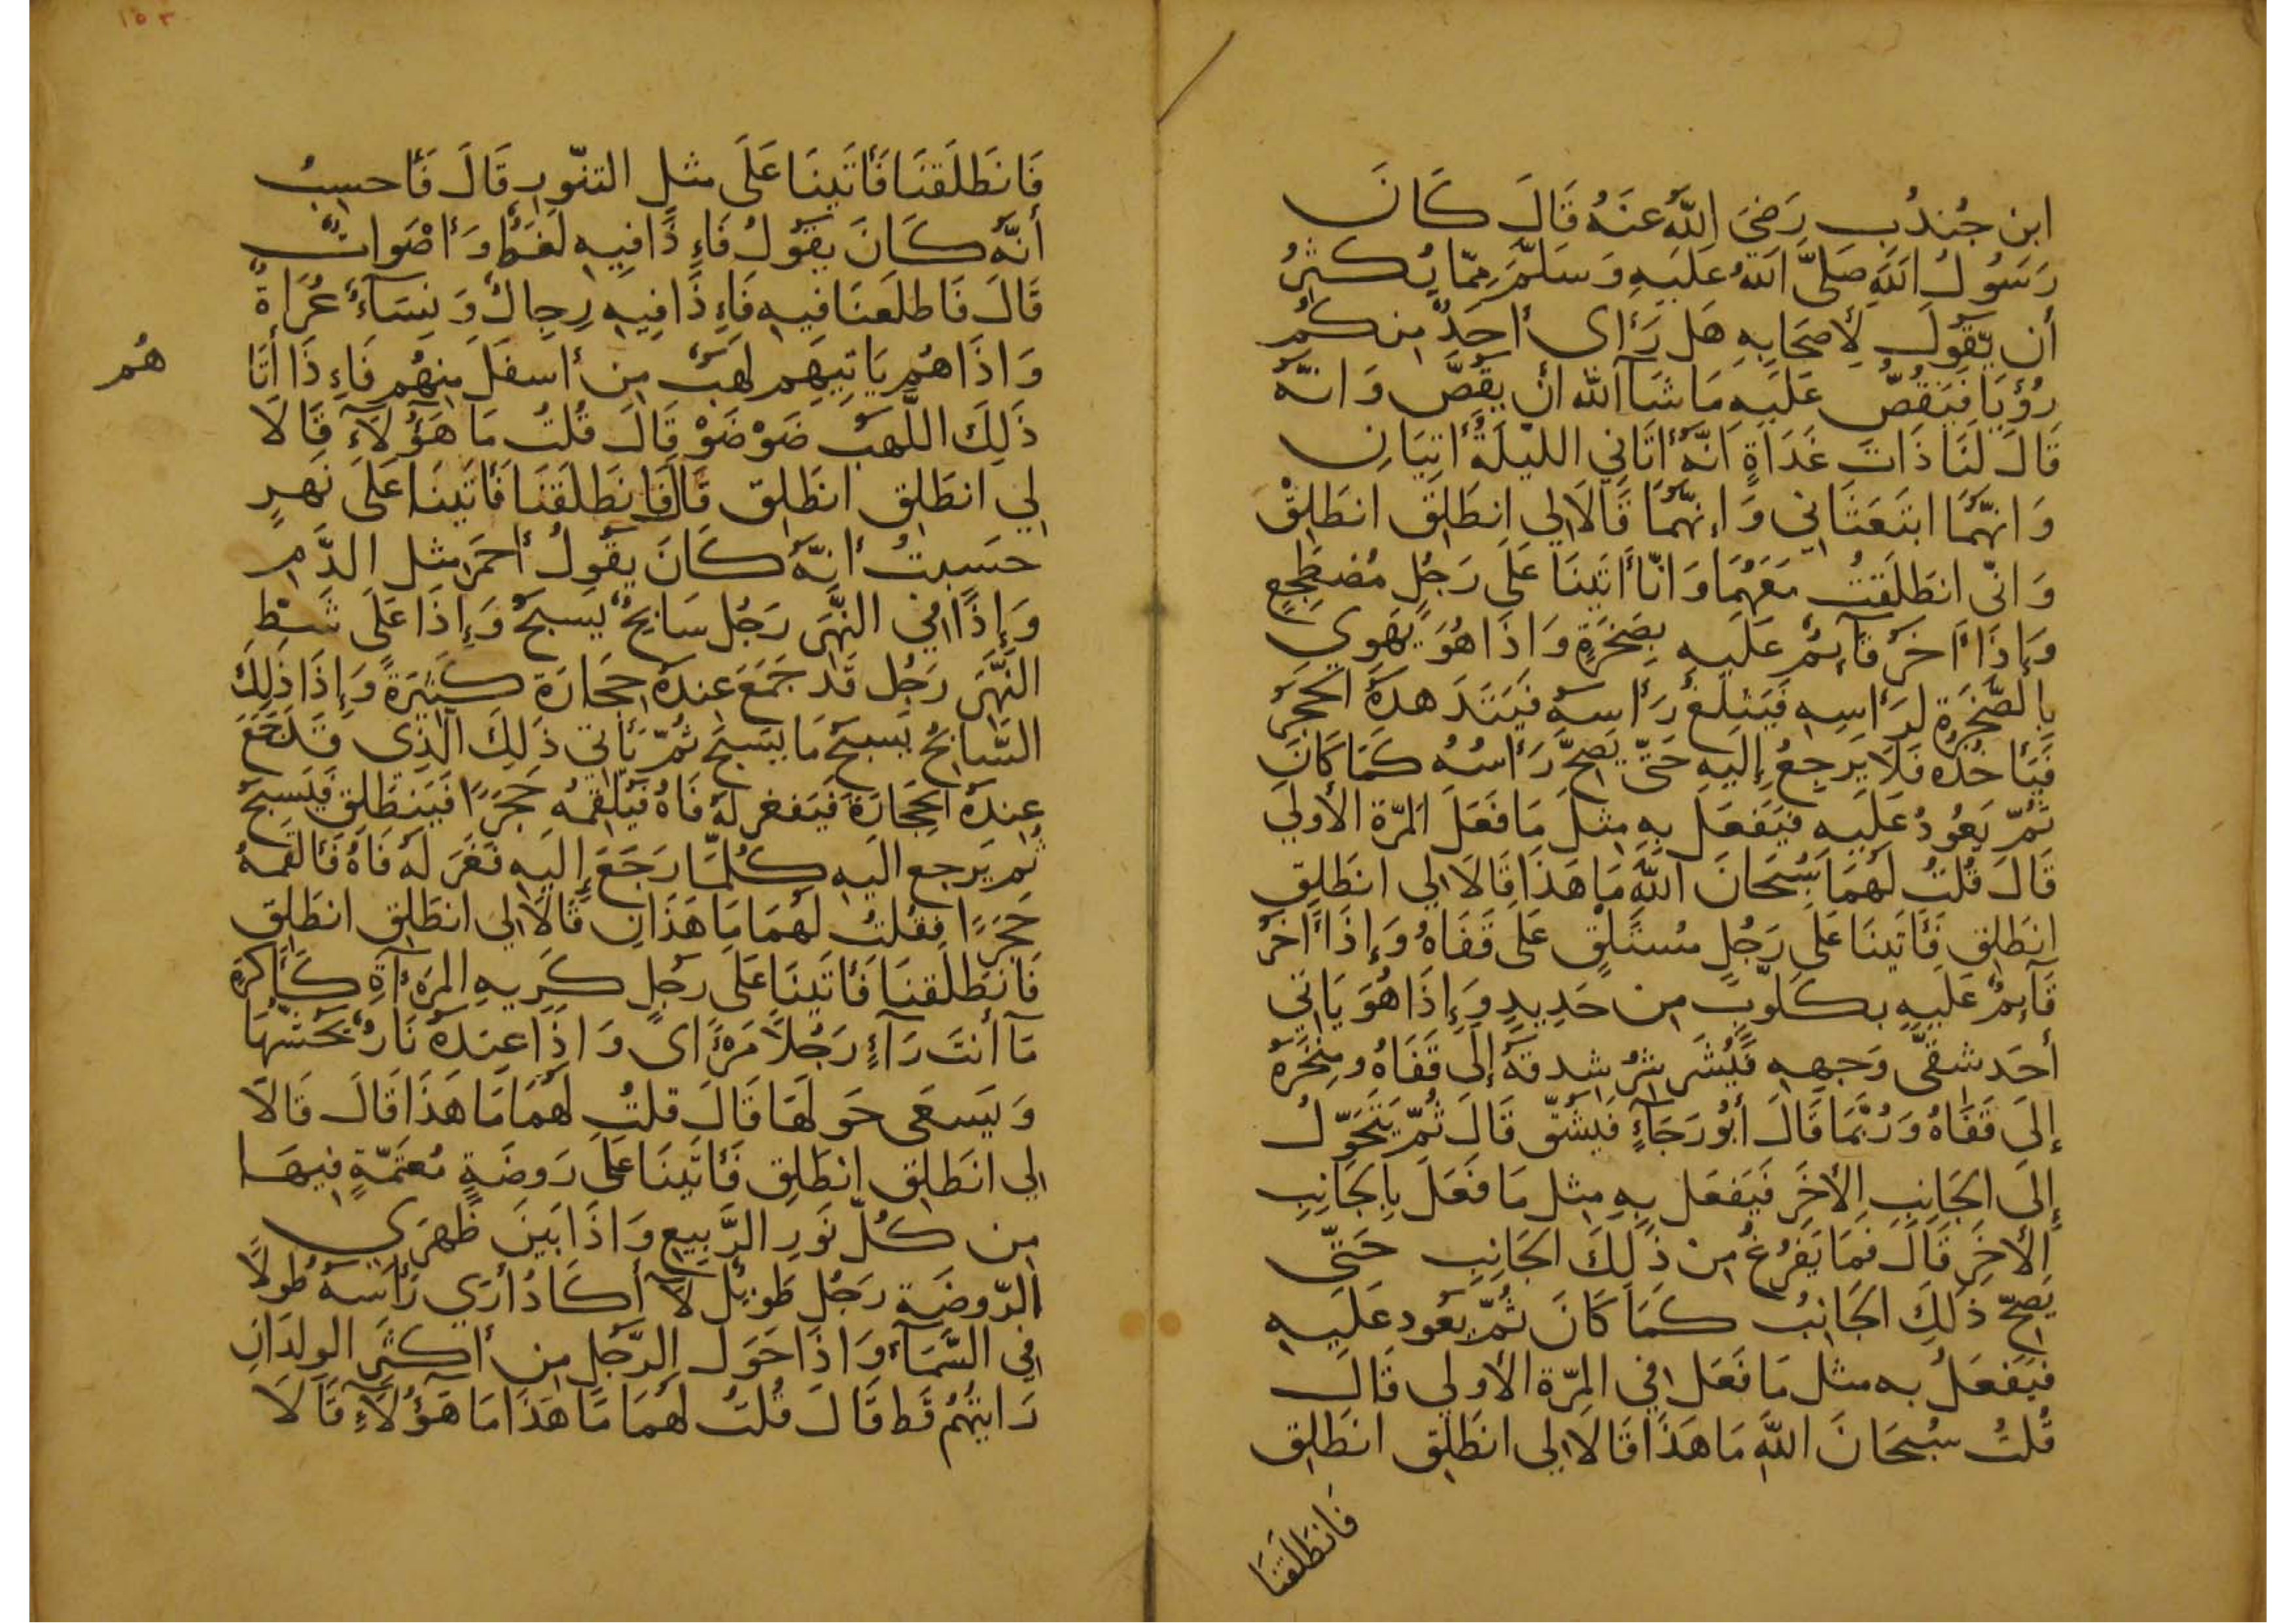 ابن جُندُبٍ رَضيَ اللّٰهُ عَنهُ قَالَ كَانَ
رَسُولُ اللّٰهِ صَلَّى اللّٰهُ عَلَيهِ وَسَلَّمَ مِمّا يُكثِرُ
أن يَقُولَ لِأَصحَابِهِ هَل رَأى أحَدٌ مِنكُم
رُؤيَا فَيَقُصُّ عَلَيهِ مَا شَآ اللّٰه ان يَقُصَّ وَانّهُ
قَالَ لَنَا ذَاتَ غَدَاةٍ انّهُ أتَانِي الليلَةَ أتِيَانِ
وَانّهُمَا ابتَعَثَانِي وَإنّهُمَا قَالَا لِي انطَلِق انطَلِقْ
وَانّى انطَلَقتُ مَعَهُمَا وَانّا أتَينَا عَلَى رَجُلٍ مُضطَجِعٍ
وَإذَا أٓخَرُ قَآئِمٌ عَلَيهِ بِصَخرَةٍ وَاذَا هُوَ يَهوِي
بِالصَّخرَةِ لِرَأسِهِ فَيَثلَغُ رَأسَهُ فَيَتَدَهدَهُ الحَجَرُ
فَيَأخُذُهُ فَلَا يَرجِعُ إلَيهِ حَتّى يَصِحَّ رَأسُهُ كَمَا كَانَ
ثُمّ يَعُودُ عَلَيهِ فَيَفعَل بِهِ مِثلَ مَا فَعَلَ المَرّةَ الأولَي
قَالَ قُلتُ لَهُمَا سُبحَانَ اللّٰهِ مَا هَذَا قَالَا لِي انطَلِق
انطَلِق فَأتَينَا عَلَى رَجُلٍ مُستَلقٍ عَلَى قَفَاهُ وَإذَا أٓخَرُ
قَآئِمٌ عَلَيهِ بكَلّوبٍ مِن حَدِيدٍ وَإذَا هُوَ يَاتِي
أحَد شِقَّى وَجهِهِ فَيُشَرشِرُ شِدقَهُ إلَى قَفَاهُ ومِنخَرَهُ
إلَى قَفَاهُ وَرُبَّمَا قَالَ أبُو رَجَآءٍ فَيَشُقّ قَالَ ثُمّ يَتَحَوّلُ
إلَى الجَانِبِ الأخَرِ فَيَفعَل بِهِ مِثل مَا فَعَلَ بِالجَانِبِ
الأخَرِ قَالَ فَمَا يَفرُغُ مِن ذَلِكَ الجَانِبِ حَتّى
يَصِحّ ذَلِكَ الجَانِبُ كَمَا كَانَ ثُمّ يَعُود عَلَيهِ
فَيَفعَلُ به مثل مَا فَعَل فِي المَرّةِ الأولي قَالَ
قُلتُ سُبحَانَ اللّٰهِ مَا هَذَا قَالَا لِي انطَلِق انطَلِق
فَانطَلَقنَا
١٥٣
فَانطَلَقنَا فَأتَينَا عَلَى مثلِ التنّورِ قَالَ فَأحسِبُ
أنّهُ كَانَ يَقُولُ فَإذَا فِيهِ لَغَطٌ وَأصْوَاتٌ
قَالَ فَاطلَعنَا فيهِ فَإذَا فِيهِ رِجالٌ وَنِسَآءٌ عُرَاةٌ
وَاذَا هُم يَاتِيهِم لَهَبٌ مِن أسفَلَ مِنهُم فَإذَا أتَا
هُم
ذَلِكَ اللَّهَبُ ضَوْضَوْ قَالَ قُلتُ مَا هَؤُلَآءِ قَالَا
لِي انطَلِق انطَلِق قَالَ فَانطَلَقنَا فَأتَينَا عَلَى نَهرٍ
حسَبتُ أنّهُ كَانَ يقُولُ أحمَرَ مثل الدَّمِ
وَإذَا فِي النَّهَرِ رَجُل سَابِحٌ يَسبَحُ وَإذَا عَلَى شَطِّ
النَّهَرِ رَجُل قَد جَمَعَ عِندَهُ حِجَارَة كَثِيرَةً وَإذَا ذَلِكَ
السَّابِحُ يَسبَح مَا يَسبَح ثُمّ يَأتِي ذَلِكَ الّذِى قَد جَمَعَ
عِندَهُ الحِجَارَةَ فَيَفغر لَهُ فَاهُ فَيُلقِمُهُ حَجَرًا فَيَنطَلِق فَيَسبَحُ
ثُم يَرجِع اليهِ كُلّمَا رَجَعَ إلَيهِ فَغَرَ لَهُ فَاهُ فَألقَمَهُ
حَجَرًا فقُلتُ لَهُمَا مَا هَذَانِ قَالَا لِي انطَلِق انطَلِق
فَانطَلَقنَا فَأتَينَا عَلَى رَجُلٍ كَرِيهِ المَرآةِ كَأكرَهِ
مَآ أنتَ رَآءٍ رَجُلًا مَرأًى وَاذَا عِندَهُ نَارٌ يَحُشّهَا
وَيَسعَى حَولَهَا قَالَ قلتُ لَهُمَا مَا هَذَا قَالَ قَالَا
لِي انطَلِق انطَلِق فَأتَينَا عَلَى رَوضَةٍ مُعتَمّةٍ فِيهَا
مِن كُلّ نَورِ الرَّبِيعِ وَاذَا بَينَ ظَهرَيِ
الرّوضَةِ رَجُل طَوِيل لَآ أكَادُ أرَي رَأسَهُ طُولًا
فِي السَّمَآءِ وَاذَا حَولَ الرّجُلِ مِن أكثَرِ الولدَانِ
رَايتُهُم قَط قَالَ قُلتُ لَهُمَا مَا هَذَا مَا هَؤُلَآءِ قَالَا